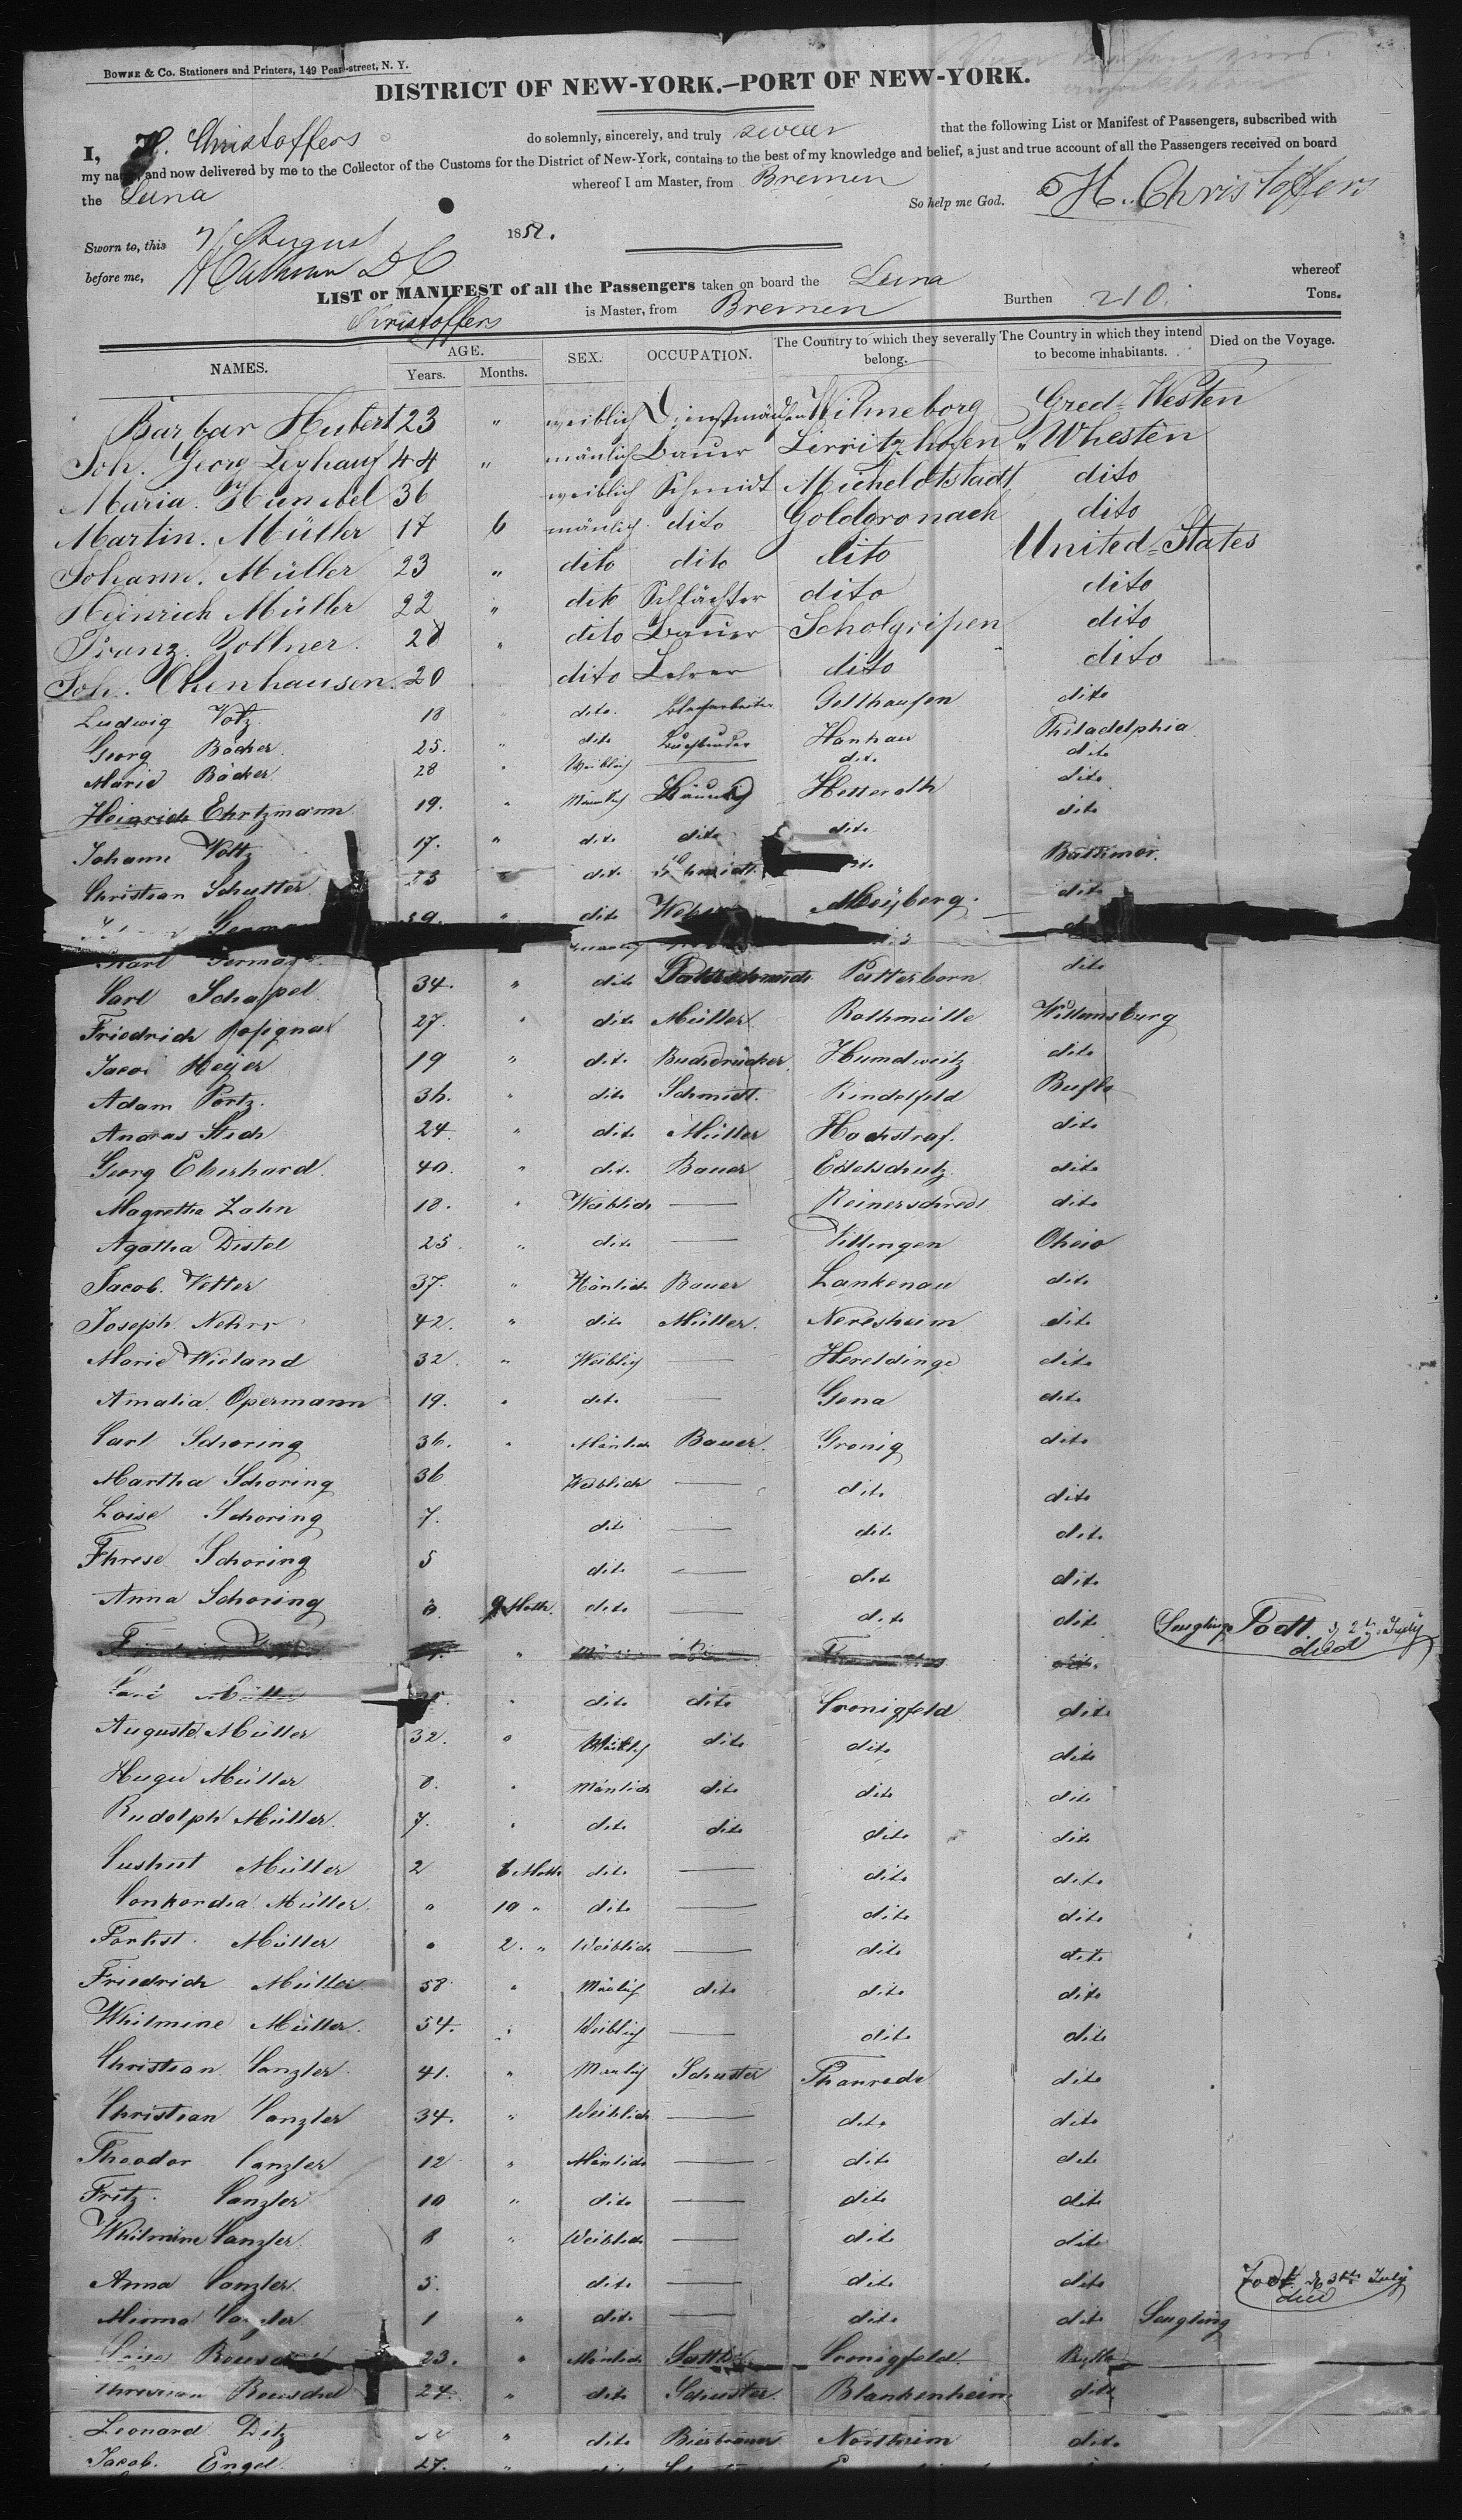 BOWNE & CO. Stationers and Printers, 149 Pearl-street, N. Y.
DISTRICT OF NEW-YORK.—PORT OF NEW-YORK.
I, H. Christoffers do solemnly, sincerely, and truly swear that the following List or Manifest of Passengers, subscribed with
my name, and now delivered by me to the Collector of the Customs for the District of New-York, contains to the best of my knowledge and belief, a just and true account of all the Passengers received on board
the Luna whereof I am Master, from Bremen
So help me God. H. Christoffers
Sworn to, this 7 August 185
before me,
LIST or MANIFEST of all the Passengers taken on board the Luna whereof
Christoffers is Master, from Bremen Burthen 210. Tons.
NAMES. AGE. Years. Months. SEX. OCCUPATION. The Country to which they severally belong. The Country in which they intend to become inhabitants. Died on the Voyage.
Barbar Hubert 23 " weiblich Dienstmädchen
Joh. Georg 44 " mänlich Bauer Whesten
Maria 36 weiblich Schmidt dito
Martin. Müller 17 6 mänlich dito Goldcronach dito
Johann. Müller 23 " dito dito dito United States
Heinrich Müller 22 " dito Schlächter dito dito
Franz. Zollner. 28 " dito Bauer Scholgripen dito
Joh. 20 dito Lehrer dito dito
Ludwig Votz 18 dito. dito
Georg Böcker. 25. " dito Hanhau Philadelphia
Marie Böcker. 28 " Weiblich — dito dito
Heinrich Ehrtzmann 19. " Mänlich Hesseroth dito
Johann Voltz 17. " dito dito dito dito
Christian Schutter. 23 dito Schmidt. Baltimor.
dito Meijberg. dito
Carl Schapel 34. " dito Patterborn dito
Friedrich 27. " dito Müller. Rothmülle Willemsburg
Jacob Meijer 19 " dito Buchdrücker. Humdweitz dito
Adam Portz. 36. " dito Schmidt. Rindelfeld Buflo
Andras Stich 24. " dito Müller Hochstraf. dito
Georg Eberhard. 40. " dito Bauer Edelschutz dito
Magretha Zahn 18. " Weiblich — Reinerschredt dito
Agatha Distel 23. " dito — Villingen Oheio
Jacob. Vetter 37. " Mänlich Bauer Lankenau dito
Joseph. Nehrr 42. " dito Müller. Neresheim dito
Marie Wieland 32. " Weiblich — Hereldinge dito
Amalia. Opermann 19. " dito — Gena dito
Carl Schoring 36. " Mänlich Bauer. Gronig dito
Martha Schoring 36 Weiblich — dito dito
Loise Schoring 7. dito — dito dito
Threse Schoring 5 dito — dito dito
Anna Schoring 0. 9 Moth. dito — dito dito Seugling Todt. d 2t July died
Müller " dito dito Cronigfeld dito
Auguste Müller 32. " Weiblich dito dito dito
Hugu Müller 8. " Mänlich dito dito dito
Rudolph Müller. 7. " dito dito dito dito
Müller 2 6 Moth dito — dito dito
Conkordia Müller. " 10 " dito — dito dito
Müller " 2. " Weiblich — dito dito
Friedrich Müller. 58 " Mänlich dito dito dito
Whilmine Müller. 54. " Weiblich — dito dito
Christian. Canzler. 41. " Mänlich Schuster Thanrode dito
Christian Canzler 34. " Weiblich — dito dito
Theodor Canzler 12 " Mänlich — dito dito
Fritz. Canzler 10 " dito — dito dito
Whilmine Canzler. 8 " Weiblich — dito dito
Anna Canzler. 5. dito — dito dito
Minna Canzler. 1 " dito — dito dito Seugling Todt d 3t July died
23. " Mänlich Cronigfeld. Buflo
Reuschel 24. " dito Schuster. Blankenheim dito
Leonard Ditz " dito Bierbrauer Northeim dito
Jacob. Engel. 27.